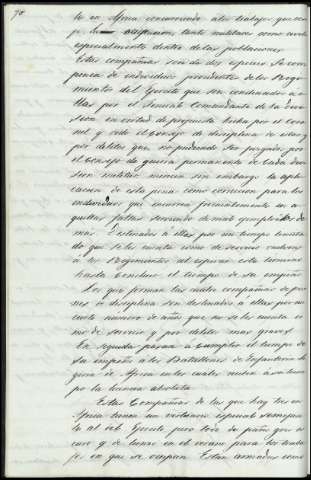 78
to en Africa concurriendo a los trabajos que
tanto militares como civiles
especialmente dentro de las poblaciones
Estas compañias son de dos especies Se com
ponen de individuos procedentes de los Regi
mientos del Ejercito que son condenados a e
llas por el General Comandante de la Divi
sion en virtud de propuesta hecha por el Coro
nel y oido el Consejo de disciplina de estos y
por delitos que no pudiendo ser juzgados por
el Consejo de guerra permanente de cada divi
sion militar merecen sin embargo la apli
cacion de esta pena como correccion para los
individuos que incurren en a
quellas faltas sirviendo de mas
destinados a ellas por un tiempo limita
do que se les cuenta como de servicio vuelven
a los Regimientos al espirar este termino
hasta concluir el tiempo de su empeño
Los que forman las cuales compañias de
disciplina son destinados a ellas por un
cierto numero de años que no se les cuenta co
mo de servicio y por delitos mas graves
En seguida pasan a cumplir el tiempo de
su empeño a los Batallones de Infanteria li
gera de Africa en los cuales reciben a su tiem
po la licencia absoluta
Estas Compañias de las que hay tres en
Africa tienen un vestuario especial semejan
te al del Ejercito pero todo de paño gris os
curo y de lienzo en el verano para los traba
jos en que se ocupan Estan armadas como